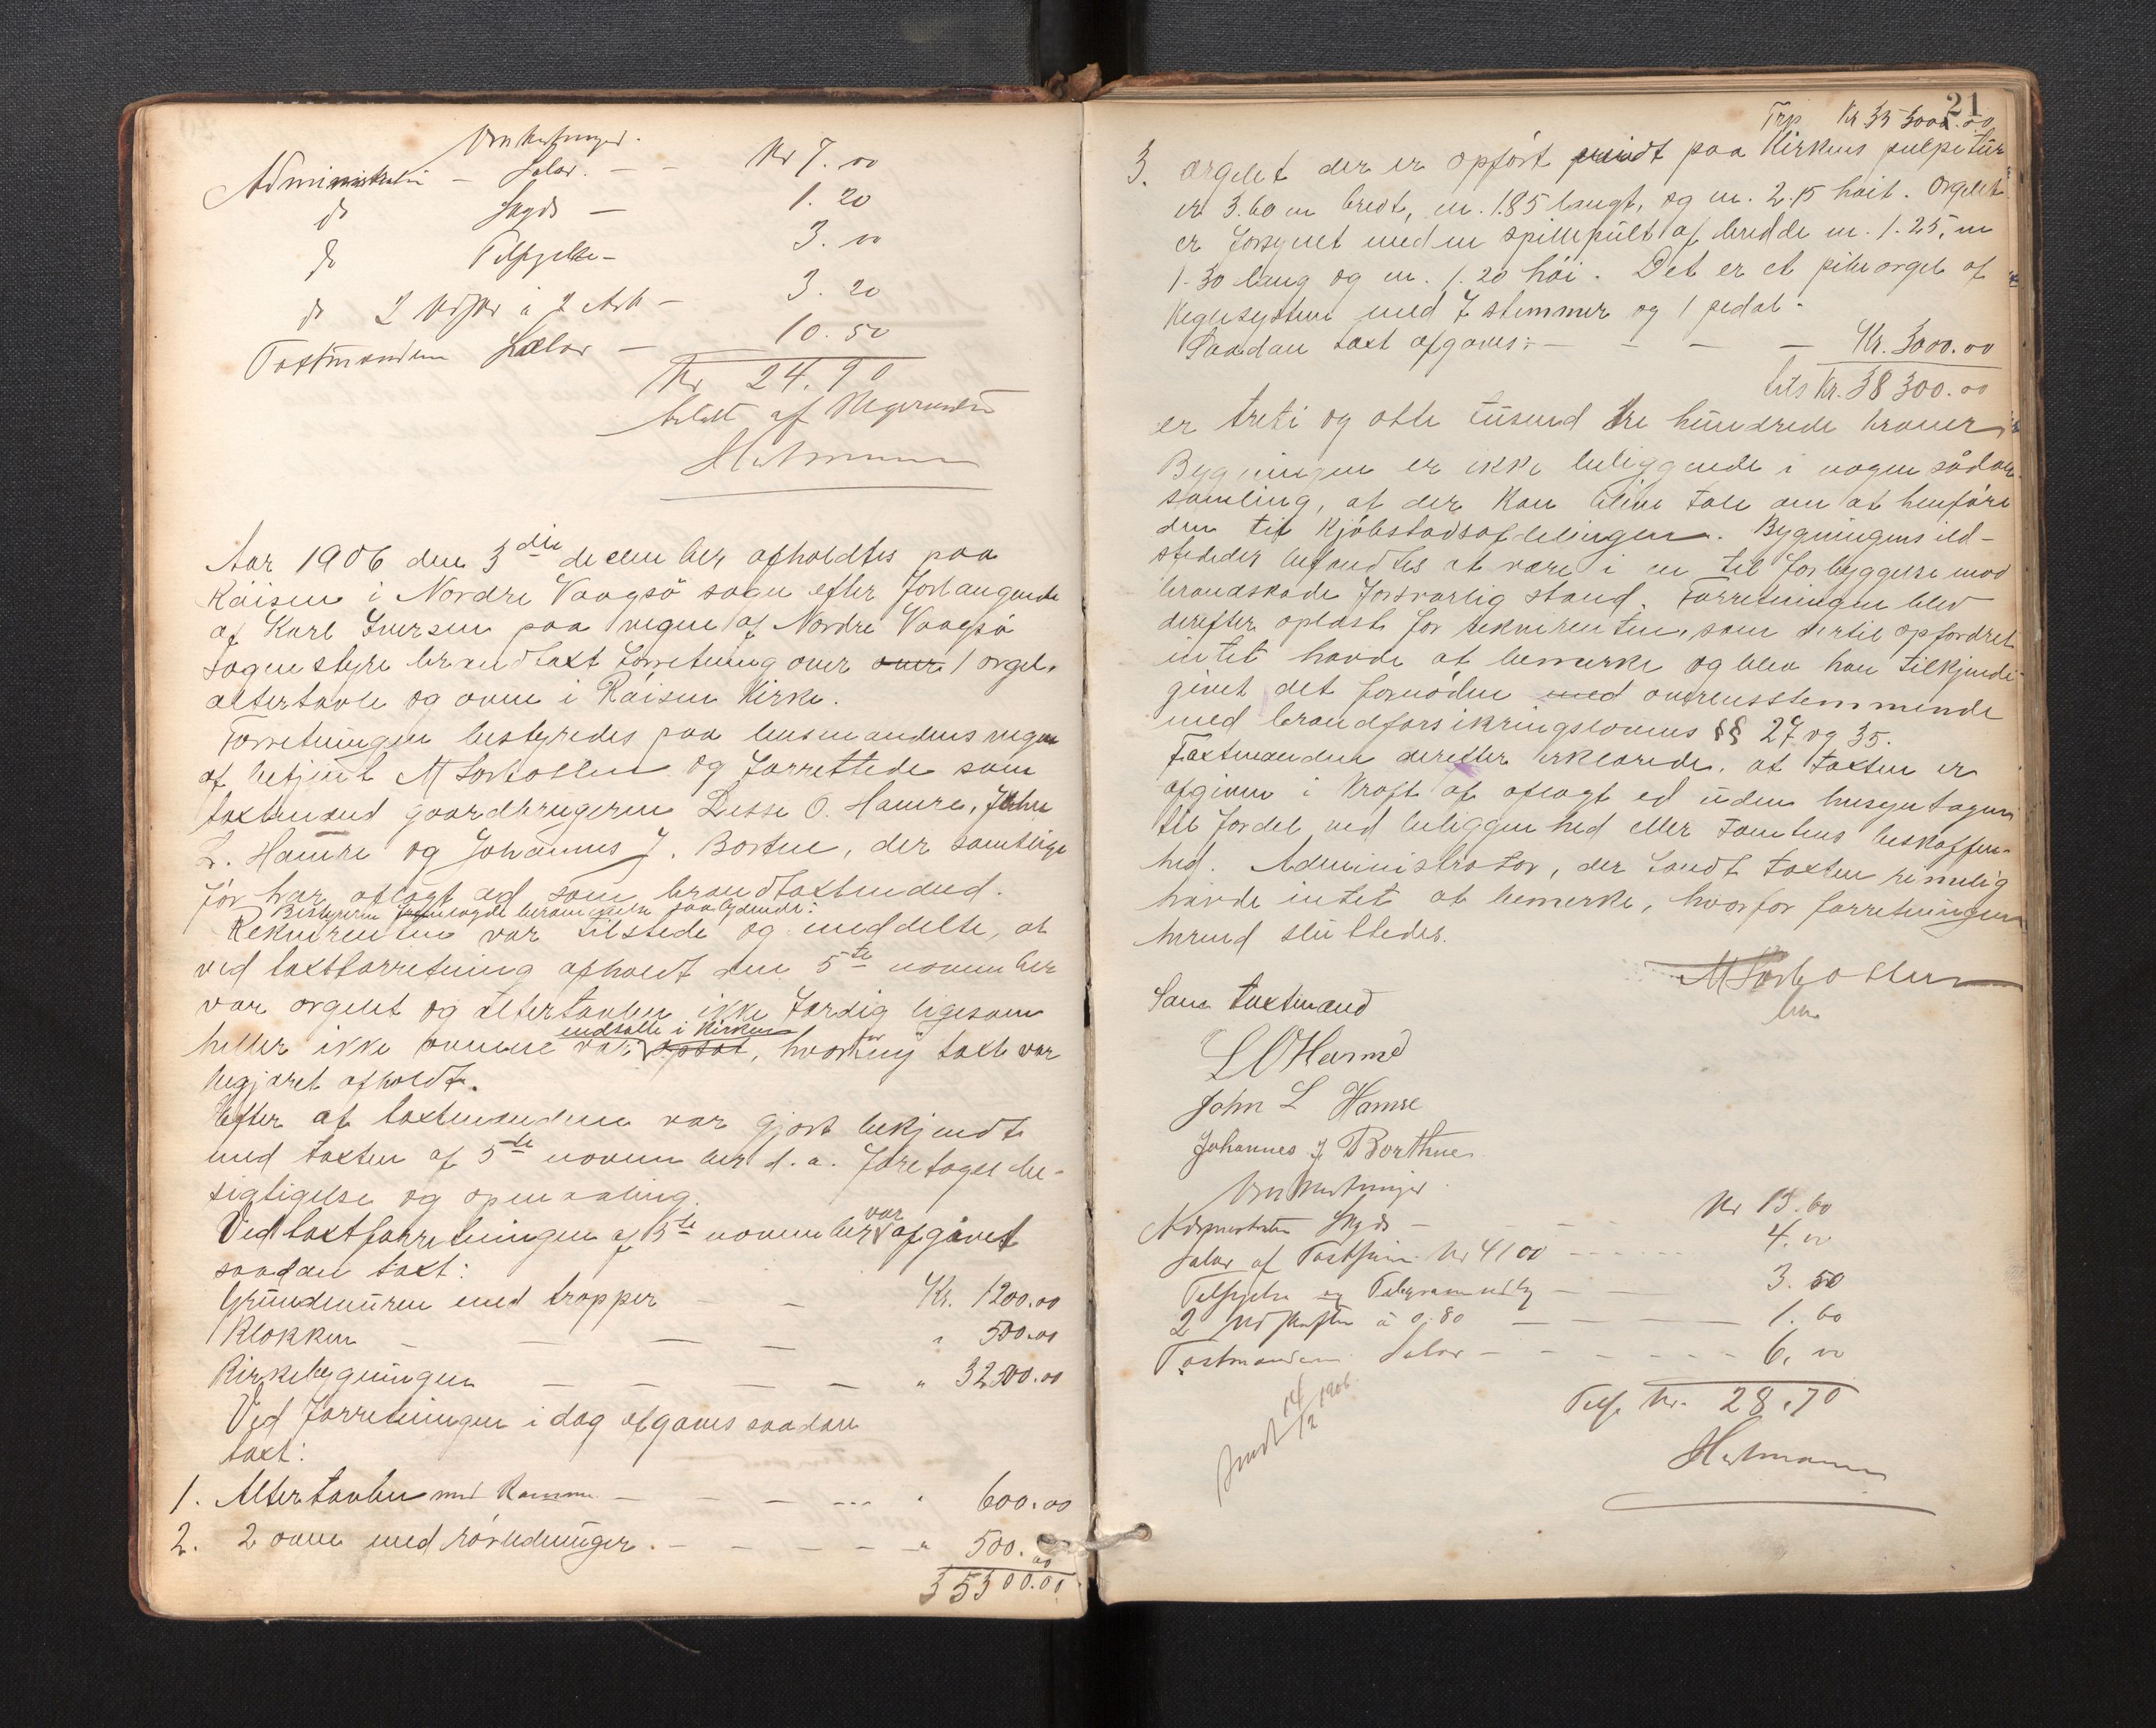 Administration — Salær. — — Kr 7.00
do Skyds — 1.20
do — 3.00
do 2 Udskr à 2 Ark — 3.20
Taxtmændene Salær — 10.50
Kr 24.90
betalt af
Aar 1906 den 3die december afholdtes paa
Råisen i Nordre Vaagsö sogn efter forlangende
af Karl Iversen paa vegne af Nordre Vaagsö
sognestyre brandtaxtforretning over over 1 orgel,
altertavle og ovne i Råisen Kirke.
Forretningen bestyredes paa lensmandens vegne
af betjent M og forrettede som
taxtmænd gaardbrugerne Lasse O. Hamre, John
L. Hamre og Johannes J. Bortne, der samtlige
för har aflagt ed som brandtaxtmænd.
Bestyreren fremlagde berammelse saalydende:
Rekvirenten var tilstede og meddelte, at
ved taxtforretning afholdt den 5te november
var orgelet og altertavlen ikke færdig ligesom
heller ikke ovnene var opsat indsatte i Kirken, hvorfor ny taxt var
begjæret afholdt.
Efter at taxtmændene var gjort bekjendt
med taxten af 5te november d.a. foretoges be-
sigtigelse og opmaaling.
Ved taxtforretningen af 5te november var afgivet
saadan taxt:
Grundmuren med trapper — — Kr. 1200.00
Klokken — — — " 500.00
Kirkebygningen — — — — " 32500.00
Ved forretningen i dag afgaves saadan
taxt:
1. Altertavlen med Ramme — — — — " 600.00
2. 2 ovne med rörledninger. — — — — " 500.00
35300.00
21
Trp Kr 35 300.00
3. Orgelet der er opfört paa Kirkens pulpitur
er 3.60 m bredt, m. 1.85 langt, og m. 2.15 höit. Orgelet
er forsynet med en spillepult af bredde m. 1.25, m
1.30 lang og m. 1.20 höi. Det er et pibeorgel af
Keglesystem med 7 stemmer og 1 pedal.
Saadan taxt afgaves: — — — — Kr. 3000.00
tils Kr. 38 300.00
er treti og otte tusend tre hundrede kroner
Bygningen er ikke beliggende i nogen sådan
samling, at der kan blive tale om at henföre
den til Kjöbstadsafdelingen. Bygningens ild-
steder befandtes at være i en til forbyggelse mod
brandskade forsvarlig stand. Forretningen blev
derefter oplæst for rekvirenten, som dertil opfordret
intet havde at bemerke og blev han tilkjende-
givet det fornödne med overensstemmende
med brandforsikringslovens §§ 27 og 35.
Taxtmændene derefter erklærede, at taxten er
afgiven i Kraft af aflagt ed uden hensyntagen
til fordel ved beliggenhed eller tomtens beskaffen-
hed. Administrator, der fandt taxten rimelig
havde intet at bemerke, hvorfor forretningen
hermed sluttedes.
Som taxtmænd
L O Hamre
John L Hamre
Johannes J Borthne
Administrator Skyds — — — — Kr 13.60
Salær af Taxtsum Kr 4100 — — — 4.00
og — — 3.50
2 Udskrifter à 0.80 — — — — 1.60
Taxtmændenes Salær — — — — 6.00
Tils. Kr. 28.70
Sendt 14/12 1906.